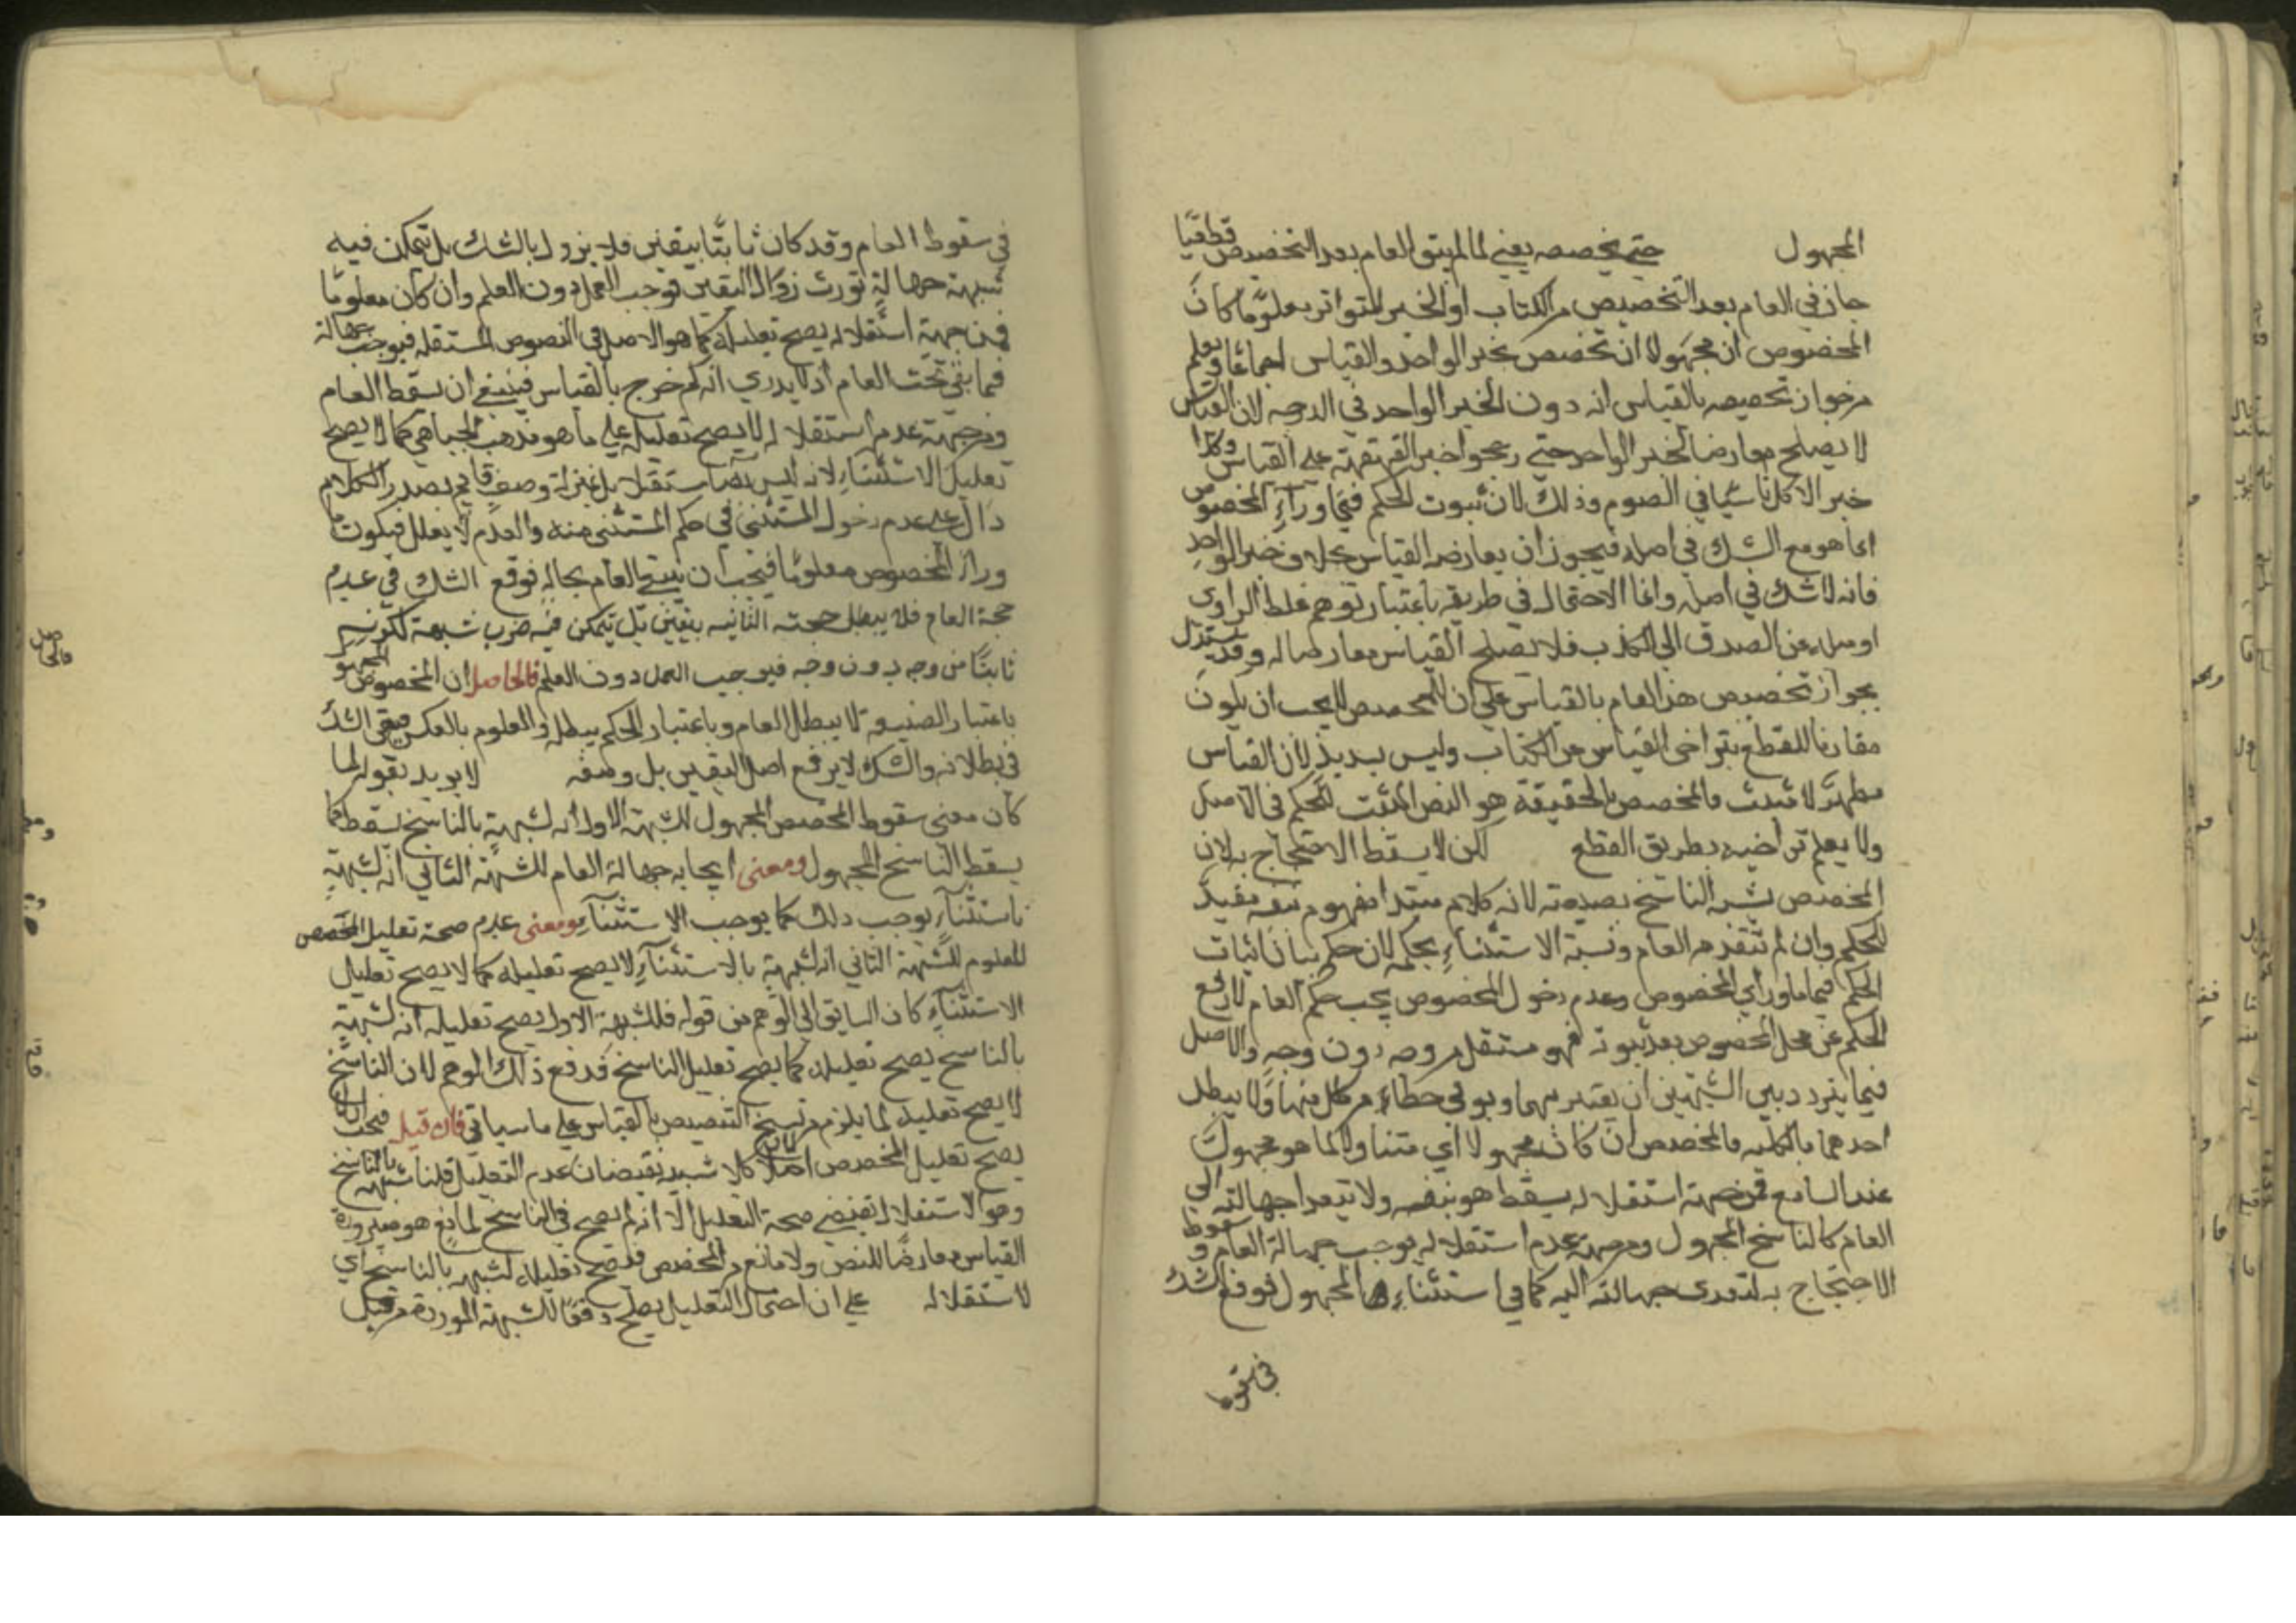 المجهول حتى يخصصه يعني لما لم يبق العام بعد التخصيص قطعيا
جاز في العام بعد التخصيص من الكتاب او الخبر المتواتر معلوما كان
المخصوص او مجهولا ان تخصص بخبر الواحد والقياس اجماعا ويعلم
من جواز تخصيصه بالقياس انه دون الخبر الواحد في الدرجة لان القياس
لا يصلح معارضا لخبر الواحد حتى رجحوا خبر القهقهة على القياس وكذا
خبر الاكل ناسيا في الصوم وذلك لان ثبوت الحكم فيما وراء المخصوص
انما هو مع الشك في اصله فيجوز ان يعارضه القياس بخلاف خبر الواحد
فانه لا شك في اصله وانما الاحتمال في طريقه باعتبار توهم غلط الراوي
او ميله عن الصدق الى الكذب فلا يصلح القياس معارضا له وقد يستدل
بجواز تخصيص هذا العام بالقياس على ان المخصص لا يجب ان يكون
مقارنا للقطع بتراخى القياس عن الكتاب وليس بسديد لان القياس
مظهر لا مثبت فالمخصص بالحقيقة هو النص المثبت للحكم في الاصل
ولا يعلم تراخيه بطريق القطع لكن لا يسقط الاحتجاج به لان
المخصص يشبه الناسخ بصيغته لانه كلام مبتدا مفهوم بنفسه مفيد
للحكم وان لم يتقدم العام ونسبة الاستثناء بحكمه لان حكمه بيان اثبات
الحكم فيما وراي المخصوص وعدم دخول المخصوص تحب حكم العام لا رفع
الحكم عن محل المخصوص بعد ثبوته فهو مستقل من وجه دون وجه والاصل
فيما يتردد بين الشبهين ان يعتبر بهما ويوفى حظا من كل منها ولا يبطل
احدهما بالكلية فالمخصص ان كان مجهولا اي متناولا لما هو مجهول
عند السامع فمن جهة استقلاله يسقط هو بنفسه ولا يتعدا جهالته الى
العام كالناسخ المجهول ومن جهة عدم استقلاله يوجب جهالة العام وسقوط
الاحتجاج به لتعدى جهالته اليه كما في استثناء المجهول فوقع الشك
في سقوط
في سقوط العام وقد كان ثابتا بيقين فلا يزول بالشك بل تمكن فيه
شبهة جهالة تورث زوال اليقين فوجب العمل دون العلم وان كان معلوما
فمن جهة استقلاله يصح تعليله كما هو الاصل في النصوص المستقلة فيوجب جهالة
فيما بقي تحت العام اذ لا يدري انه كم خرج بالقياس فينبغي ان يسقط العام
ومن جهة عدم استقلاله لا يصح تعليله على ما هو مذهب الجبائي كما لا يصح
تعليل الاستثناء لانه ليس نصا مستقلا بل بمنزلة وصف قائم بصدر الكلام
دال على عدم دخول المستثنى في حكم المستثنى منه والعدم لا يعلل فيكون ما
وراء المخصوص معلوما فيجب ان يبقى العام بحاله فوقع الشك في عدم
حجة العام فلا يبطل حجته الثانيه بيقين بل يتمكن فيه ضرب شبهة لكونه
ثابتا من وجه دون وجه فيوجب العمل دون العلم فالحاصل ان المخصوص المجهول
باعتبار الصيغة لا يبطل العام وباعتبار الحكم يبطله والمعلوم بالعكس فيبقى الشك
في بطلانه والشك لا يرفع اصل اليقين بل وصفه لا يريد بقوله لما
كان معنى سقوط المخصص المجهول للشبهة الاول انه لشبهة بالناسخ يسقط كما
يسقط الناسخ المجهول ومعنى ايجابه جهالة العام للشبهة الثاني انه لشبهة
باستثناء يوجب ذلك كما يوجب الاستثناء ومعنى عدم صحة تعليل المخصص
المعلوم للشبهة الثاني انه لشبهة بالاستثناء لا يصح تعليله كما لا يصح تعليل
الاستثناء كان السابق الى الوهم من قوله فللشبهة الاول يصح تعليله انه لشبهة
بالناسخ يصح تعليله كما يصح تعليل الناسخ فدفع ذلك الوهم لان الناسخ
لا يصح تعليله لما يلزم من نسخ التنصيص بالقياس على ما سياتي فان قيل فحينئذ
يصح تعليل المخصص اصلا كلا شبهيه يقتضان عدم التعليل قلنا شبهه بالناسخ
وهو الاستقلال يقتضي صحة التعليل الا انه لم يصح في الناسخ لمانع هو صيرورة
القياس معارضا للنص ولا مانع من المخصص فصح تعليله لشبهه بالناسخ اي
لاستقلاله على ان احتمال التعليل يصلح دفعا للشبهة الموردة من قبل